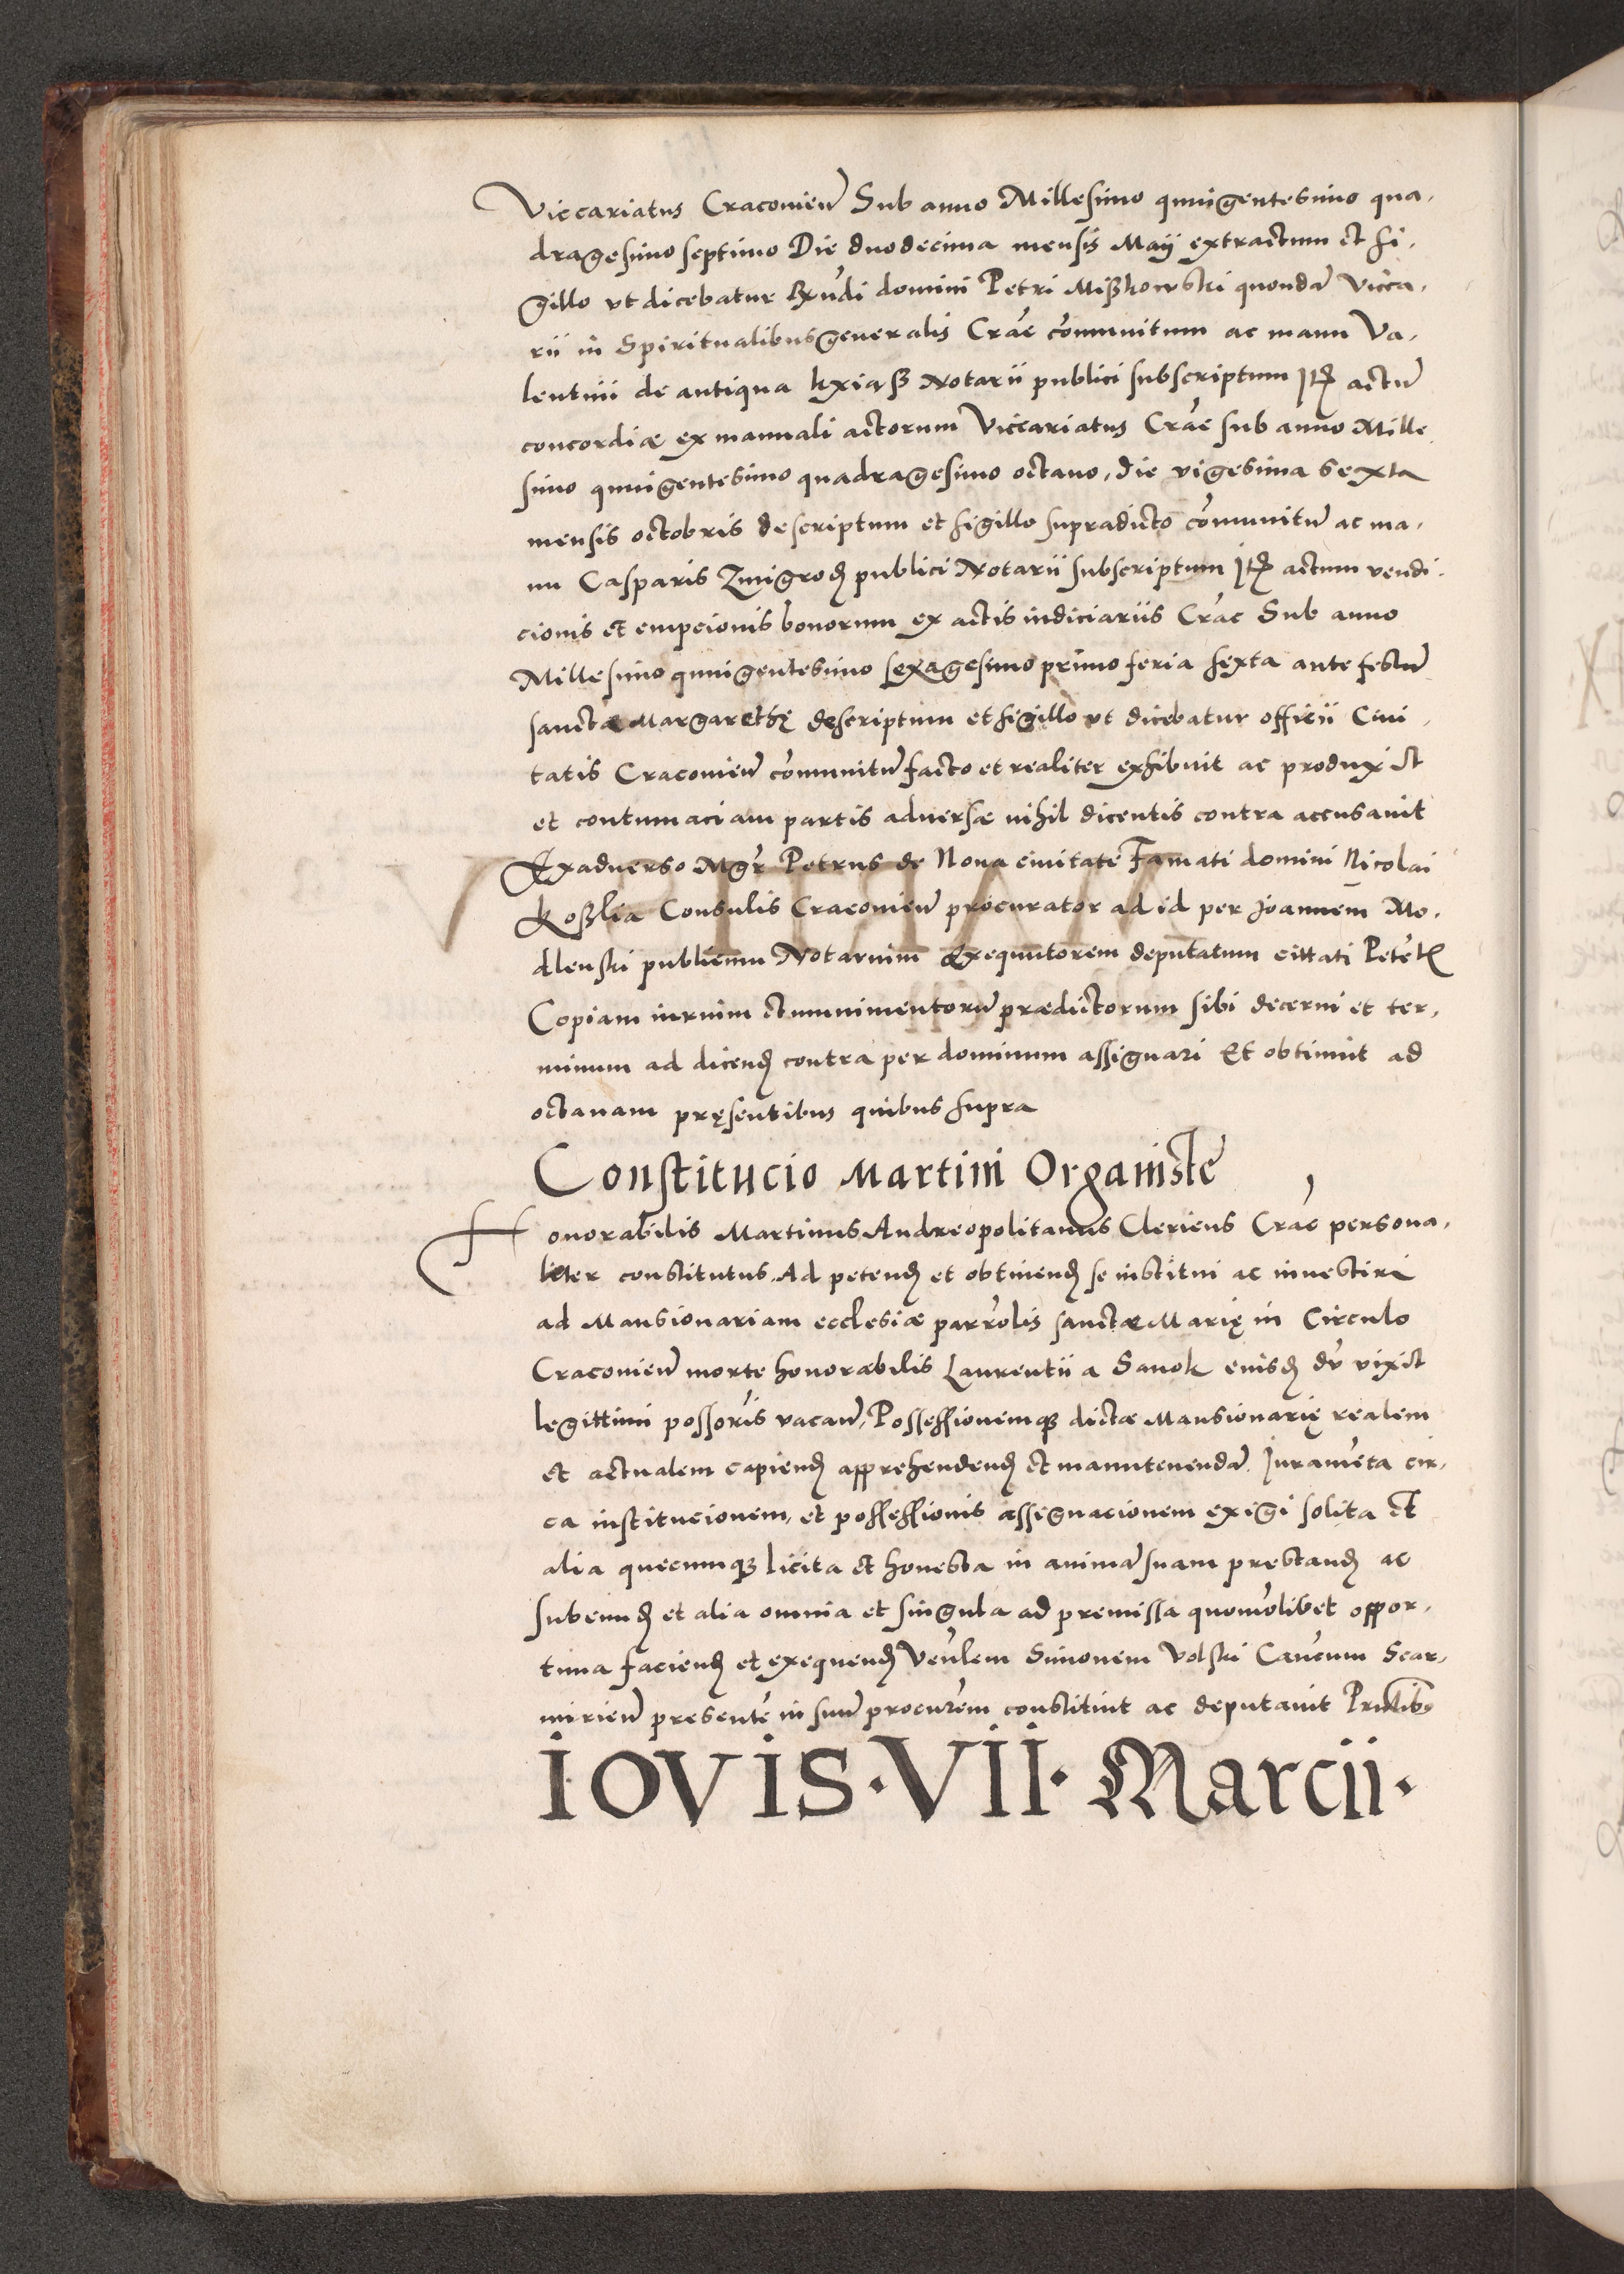 Viccariatus Cracovien̄ Sub anno Millesimo quingentesimo qua,
dragesimo septimo Die duodecima mensis Maij extractum et si,
gillo vt dicebatur Rxndi domini Petri Mißkowski quondā Vicca,
rii in Spiritualibus generalis Crac̄ cōmunitum ac manu Va,
lentini de antiqua kxiąß Notarii publici subscriptum Itꝫ actū
concordiæ ex manuali actorum Viccariatus Crac̄ sub anno Mille
simo quingentesimo quadragesimo octauo, die vigesima sexta
mensis octobris descriptum et sigillo supradicto cōmunitū ac ma,
nu Casparis Zmigroꝺ publici Notarii subscriptum Itꝫ actum vendi,
cionis et empcionis bonorum ex actis iudiciariis Crac̄ Sub anno
Millesimo quingentesimo sexagesimo primo feria sexta ante festū
sanctæ Margarethę descriptum et sigillo vt dicebatur officii Ciui,
tatis Cracovien̄ cōmunitū facto et realiter exhibuit ac produxit
et contumaciam partis aduersæ nihil dicentis contra accusauit
Exaduerso Mgr̄ Petrus de Noua ciuitate Famati domini Nicolai
Koßlia Consulis Cracovien̄ procurator ad id per Joannem Mo,
dlenski publicum Notarium Exequutorem deputatum cittati
Copiam iurium et munimentorū prædictorum sibi decerni et ter,
minum ad dicenꝺ contra per dominum assignari Et obtinuit ad
octauam pręsentibus quibus supra
Constitucio Martini Organiste
Honorabilis Martinus Andreopolitanus Clericus Crac̄ persona,
liter constitutus. Ad petenꝺ et obtinenꝺ se institui ac inuestiri
ad Mansionariam ecclesiæ parrōlis sanctæ Marię in Circulo
Cracovien̄ morte honorabilis Laurentii a Sanok eiusꝺ dū vixit
legittimi possoris̄ vacan̄, Possessionemqꝫ dictæ Mansionarię realem
et actualem capienꝺ apprehendenꝺ et manutenendā. Iuramēta cir,
ca institucionem, et possessionis assignacionem exigi solita et
alia quecumqꝫ licita et honesta in animā suam prestanꝺ ac
subeunꝺ et alia omnia et singula ad premissa quomōlibet oppor,
tuna facienꝺ et exequenꝺ Ven̄lem Simonem Volski Can̄cum Scar,
mirien̄ presentē in suū procur̄em constituit ac deputauit Pn̄tibus
IOVIS · VII · Marcii ·